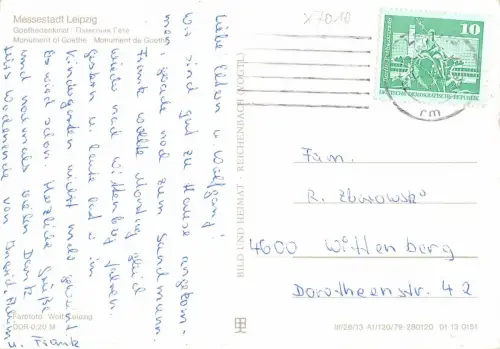 Messestadt Leipzig
Goethedenkmal / Памятник Гёте
Monument of Goethe Monument de Goethe
x7010
10
DEUTSCHE DEMOKRATISCHE REPUBLIK
rm
Liebe Eltern u. Wolfgang!
Wir sind gut zu Hause angekom-
men, gerade noch zum Sandmann.
Frank wollte Montag gleich
wieder nach Wittenberg fahren.
Gestern u. heute hat er im
Kindergarten nicht mehr geweint
Es wird schon. Herzliche Grüße
und nochmals vielen Dank
fürs Wochenende von Ingrid,
u. Frank
BILD UND HEIMAT REICHENBACH (VOGTL)
Fam.
R. Zborowski
4600 Wittenberg
Dorotheenstr. 42
Farbfoto: Leipzig
DDR 0,20 M
III/26/13 A1/120/79 280120 01 13 0151